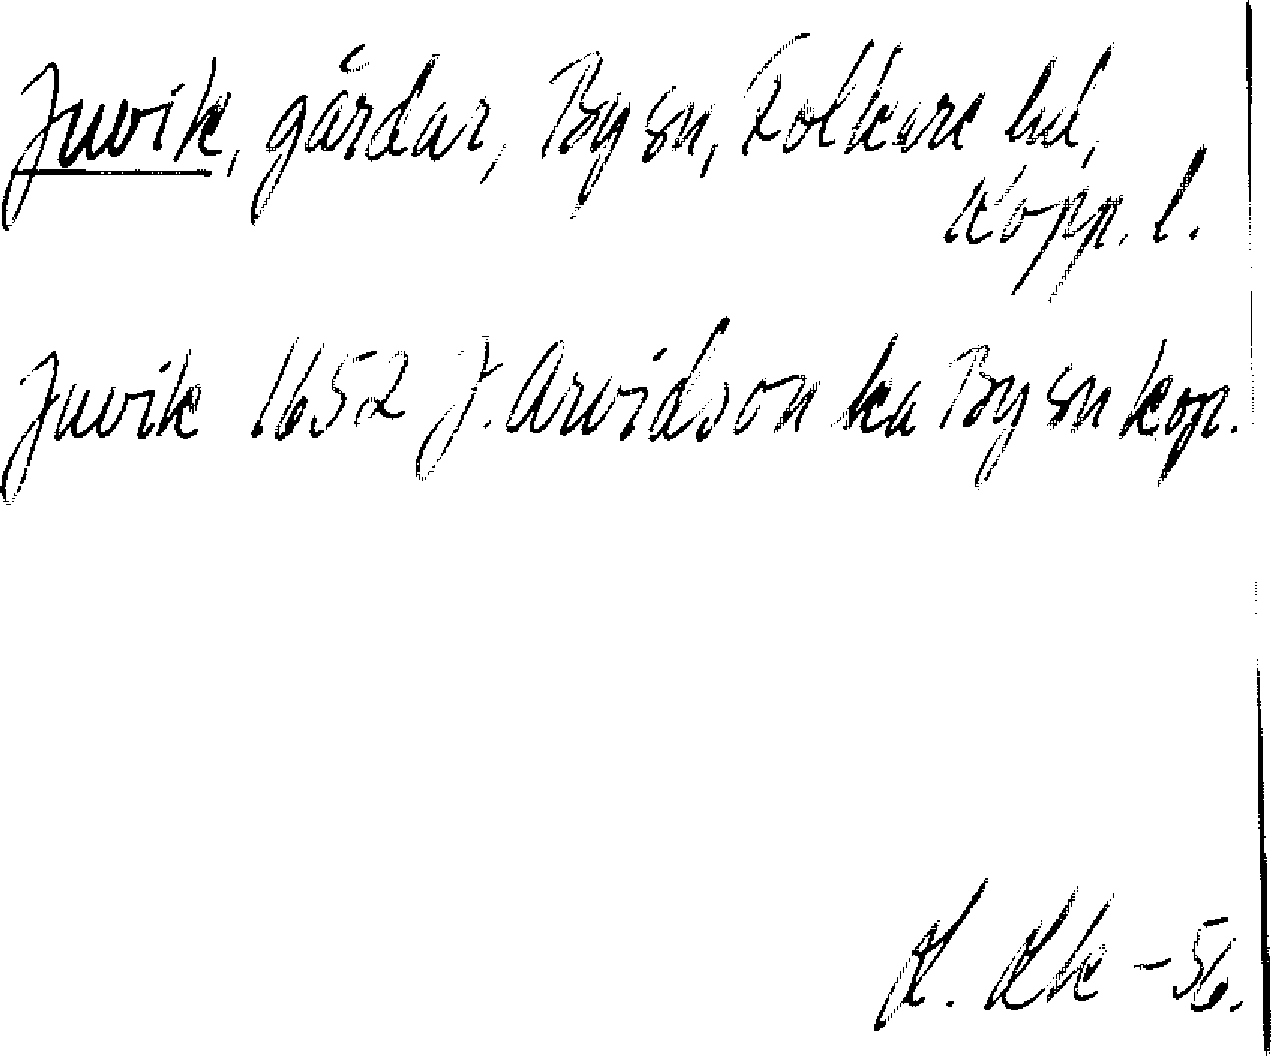 Juvik, gårdar, By sn, Folkare hd,
Kopp. l.
Juvik 1652 J. Arvidson ka By sn kop.
-56.